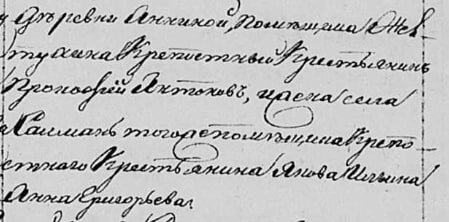 деревни Анкиной, помѣщика Жел
тухина Крепостный Крестьянинъ
Прокофей Антоновъ, и жена села
Калмань тогожъ помѣщика Крепо-
стнаго Крестьянина Якова Ильина
Анна Григорьева.